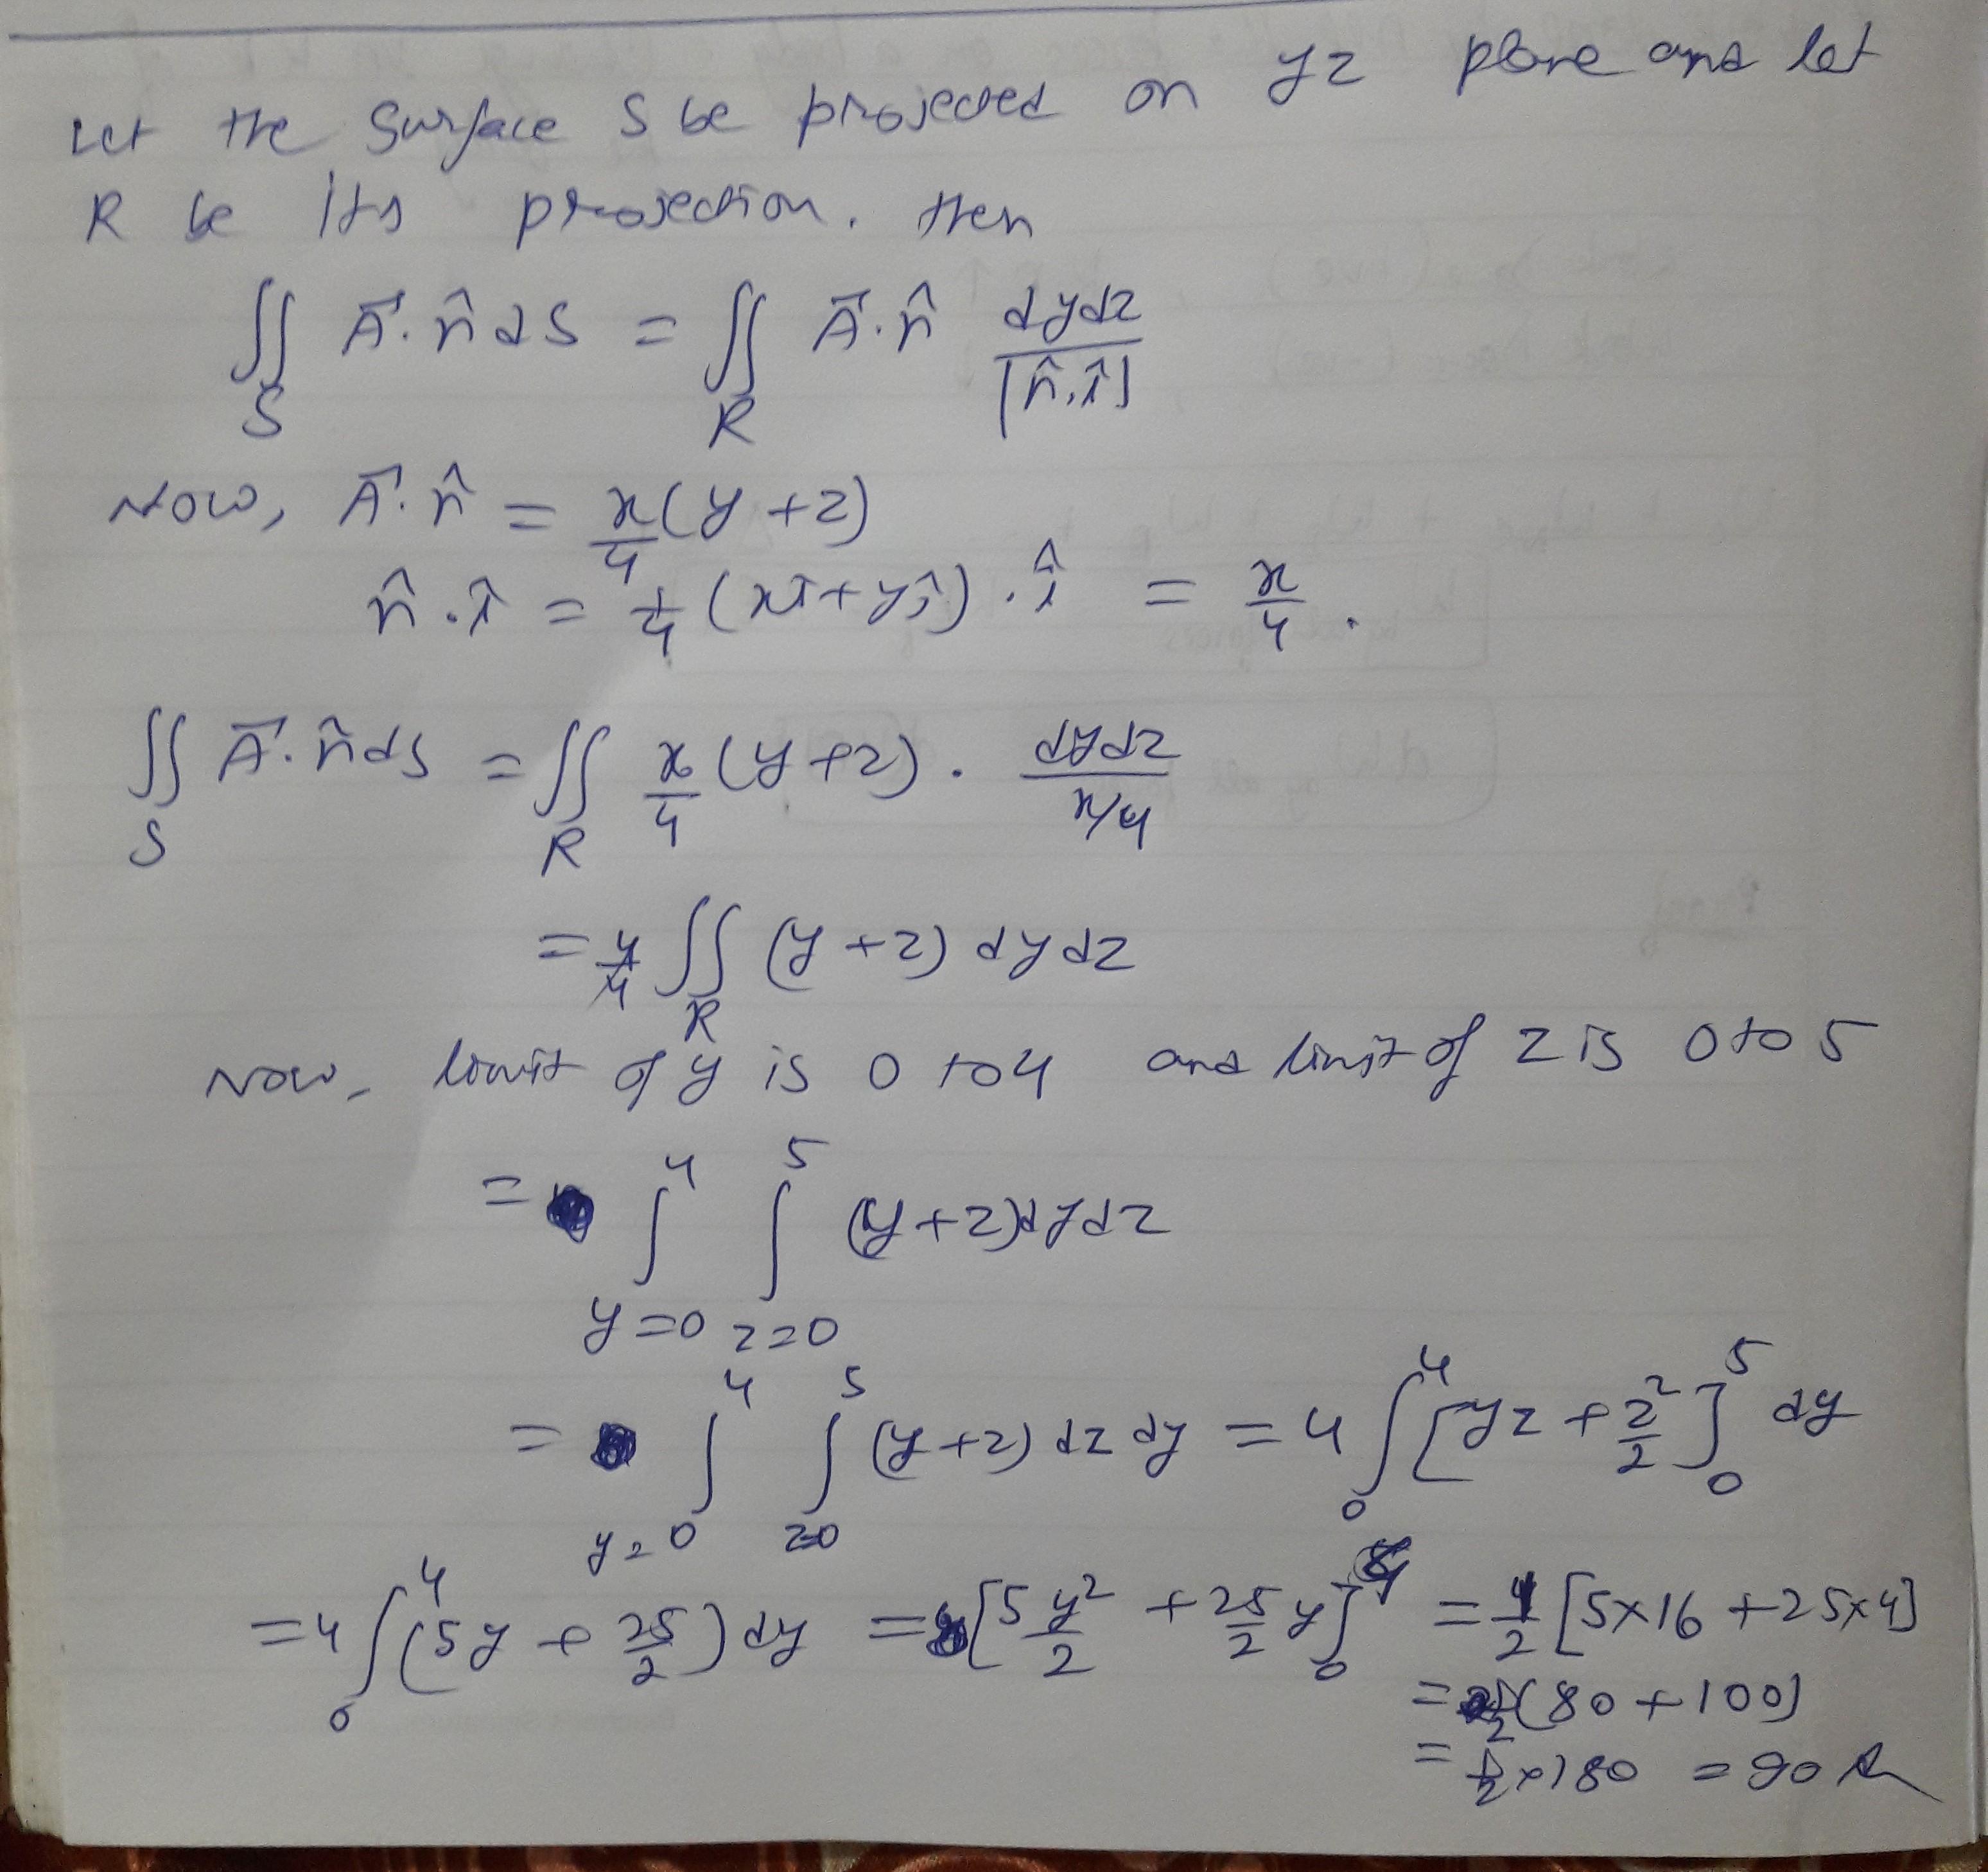 Let the surface S be projected on yz plane and let
R be its projection. Then
∬_S A⃗.n̂ dS = ∬_R A⃗.n̂ dydz/|n̂.î|
Now, A⃗.n̂ = x/4 (y+z)
n̂.î = 1/4 (xî+yĵ).î = x/4.
∬_S A⃗.n̂ds = ∬_R x/4 (y+z). dydz/(x/4)
= 4/4 ∬_R (y+z) dydz
Now, limit of y is 0 to 4 and limit of z is 0 to 5
= ∫_{y=0}^4 ∫_{z=0}^5 (y+z)dydz
= ∫_{y=0}^4 ∫_{z=0}^5 (y+z) dz dy = 4 ∫_0^4 [yz + z²/2]_0^5 dy
= 4 ∫_0^4 (5y + 25/2) dy = [5 y²/2 + 25/2 y]_0^4 = 1/2 [5×16 + 25×4]
= 1/2 (80 + 100)
= 1/2 × 180 = 90